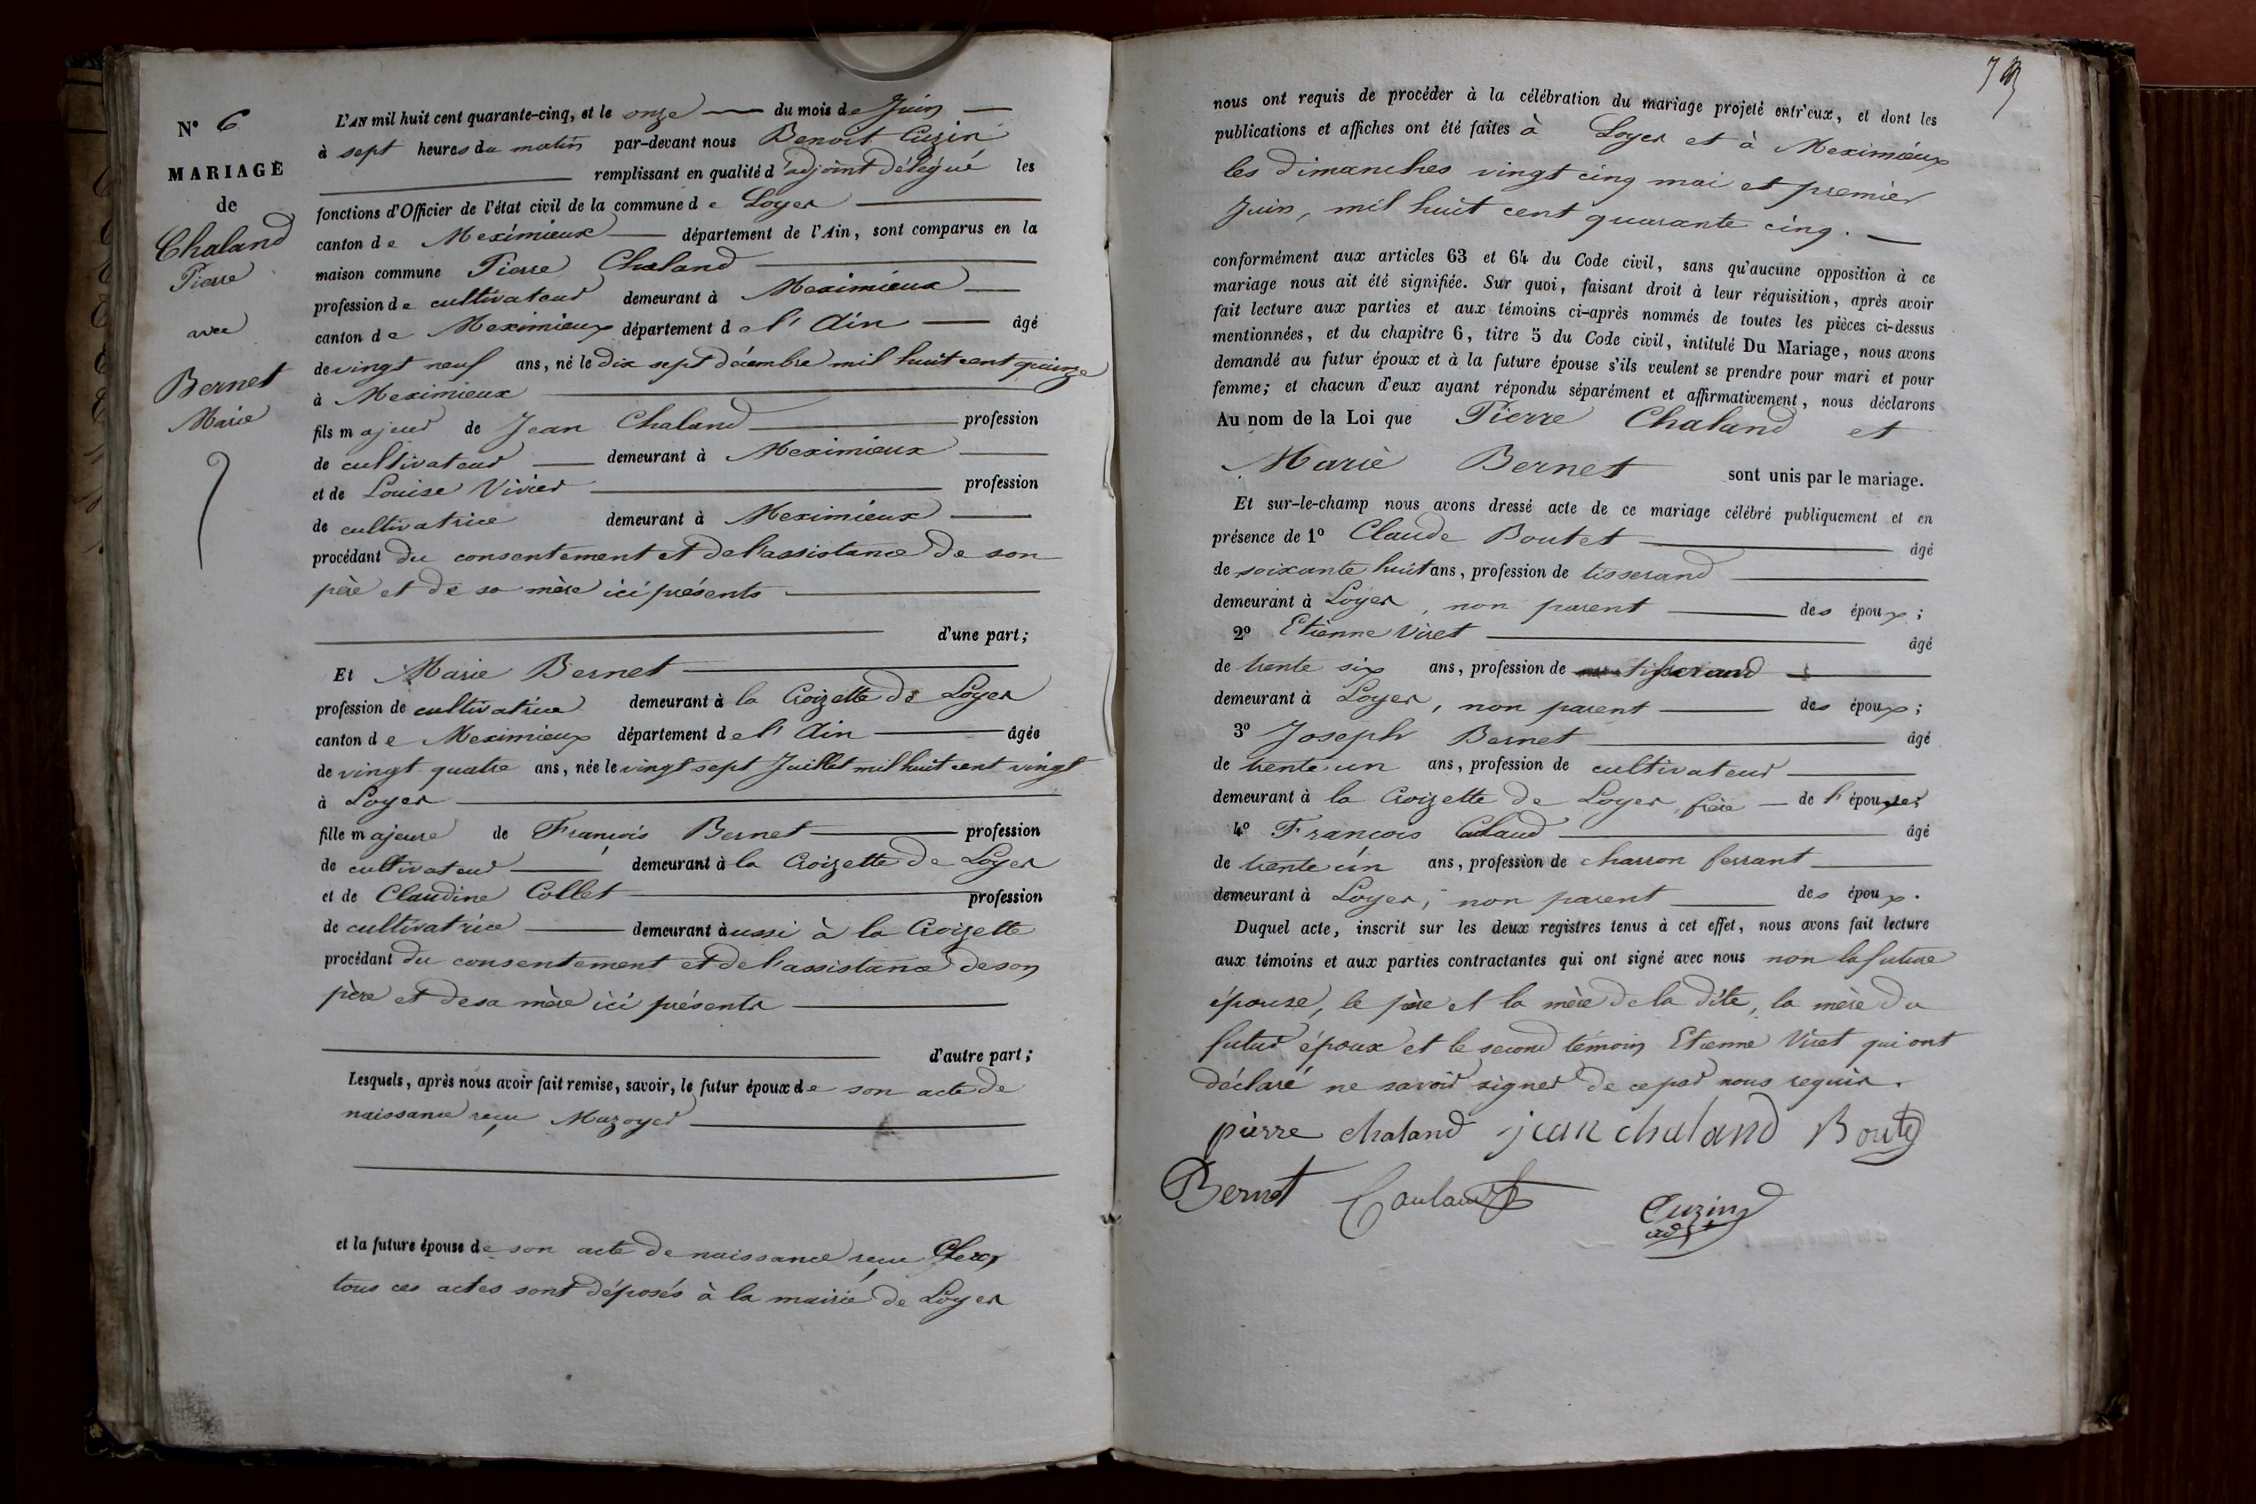 N° 6
MARIAGE
de
Chaland
Pierre
avec
Bernet
Marie
L'AN mil huit cent quarante-cinq, et le onze du mois de Juin
à sept heures du matin par-devant nous Benoit Cuzin
remplissant en qualité d'adjoint délégué les
fonctions d'Officier de l'état civil de la commune de Loyes
canton de Meximieux département de l'Ain, sont comparus en la
maison commune Pierre Chaland
profession de cultivateur demeurant à Meximieux
canton de Meximieux département de l'Ain âgé
de vingt neuf ans, né le dix sept décembre mil huit cent quinze
à Meximieux
fils majeur de Jean Chaland profession
de cultivateur demeurant à Meximieux
et de Louise Vivier profession
de cultivatrice demeurant à Meximieux
procédant du consentement et de l'assistance de son
père et de sa mère ici présents
d'une part;
Et Marie Bernet
profession de cultivatrice demeurant à la Croizette de Loyes
canton de Meximieux département de l'Ain âgée
de vingt quatre ans, née le vingt sept Juillet mil huit cent vingt
à Loyes
fille majeure de François Bernet profession
de cultivateur demeurant à la Croizette de Loyes
et de Claudine Collet profession
de cultivatrice demeurant aussi à la Croizette
procédant du consentement et de l'assistance de son
père et de sa mère ici présents
d'autre part;
Lesquels, après nous avoir fait remise, savoir, le futur époux de son acte de
naissance reçu Mazoyer
et la future épouse de son acte de naissance reçu
tous ces actes sont déposés à la mairie de Loyes
nous ont requis de procéder à la célébration du mariage projeté entr'eux, et dont les
publications et affiches ont été faites à Loyes et à Meximieux
les dimanches vingt cinq mai et premier
Juin, mil huit cent quarante cinq.
conformément aux articles 63 et 64 du Code civil, sans qu'aucune opposition à ce
mariage nous ait été signifiée. Sur quoi, faisant droit à leur réquisition, après avoir
fait lecture aux parties et aux témoins ci-après nommés de toutes les pièces ci-dessus
mentionnées, et du chapitre 6, titre 5 du Code civil, intitulé Du Mariage, nous avons
demandé au futur époux et à la future épouse s'ils veulent se prendre pour mari et pour
femme; et chacun d'eux ayant répondu séparément et affirmativement, nous déclarons
Au nom de la Loi que Pierre Chaland et
Marie Bernet sont unis par le mariage.
Et sur-le-champ nous avons dressé acte de ce mariage célébré publiquement et en
présence de 1° Claude Boutet âgé
de soixante huit ans, profession de tisserand
demeurant à Loyes, non parent des époux;
2° Etienne Viret âgé
de trente six ans, profession de tisserand
demeurant à Loyes, non parent des époux;
3° Joseph Bernet âgé
de trente un ans, profession de cultivateur
demeurant à la Croizette de Loyes, frère de l'épouse;
4° François âgé
de trente un ans, profession de charron ferrant
demeurant à Loyes, non parent des époux.
Duquel acte, inscrit sur les deux registres tenus à cet effet, nous avons fait lecture
aux témoins et aux parties contractantes qui ont signé avec nous non la future
épouse, le père et la mère de la dite, la mère du
futur époux et le second témoin Etienne Viret qui ont
déclaré ne savoir signer de ce par nous requis.
pierre chaland jean chaland Boutet
Bernet Coulaud Cuzin
adjt